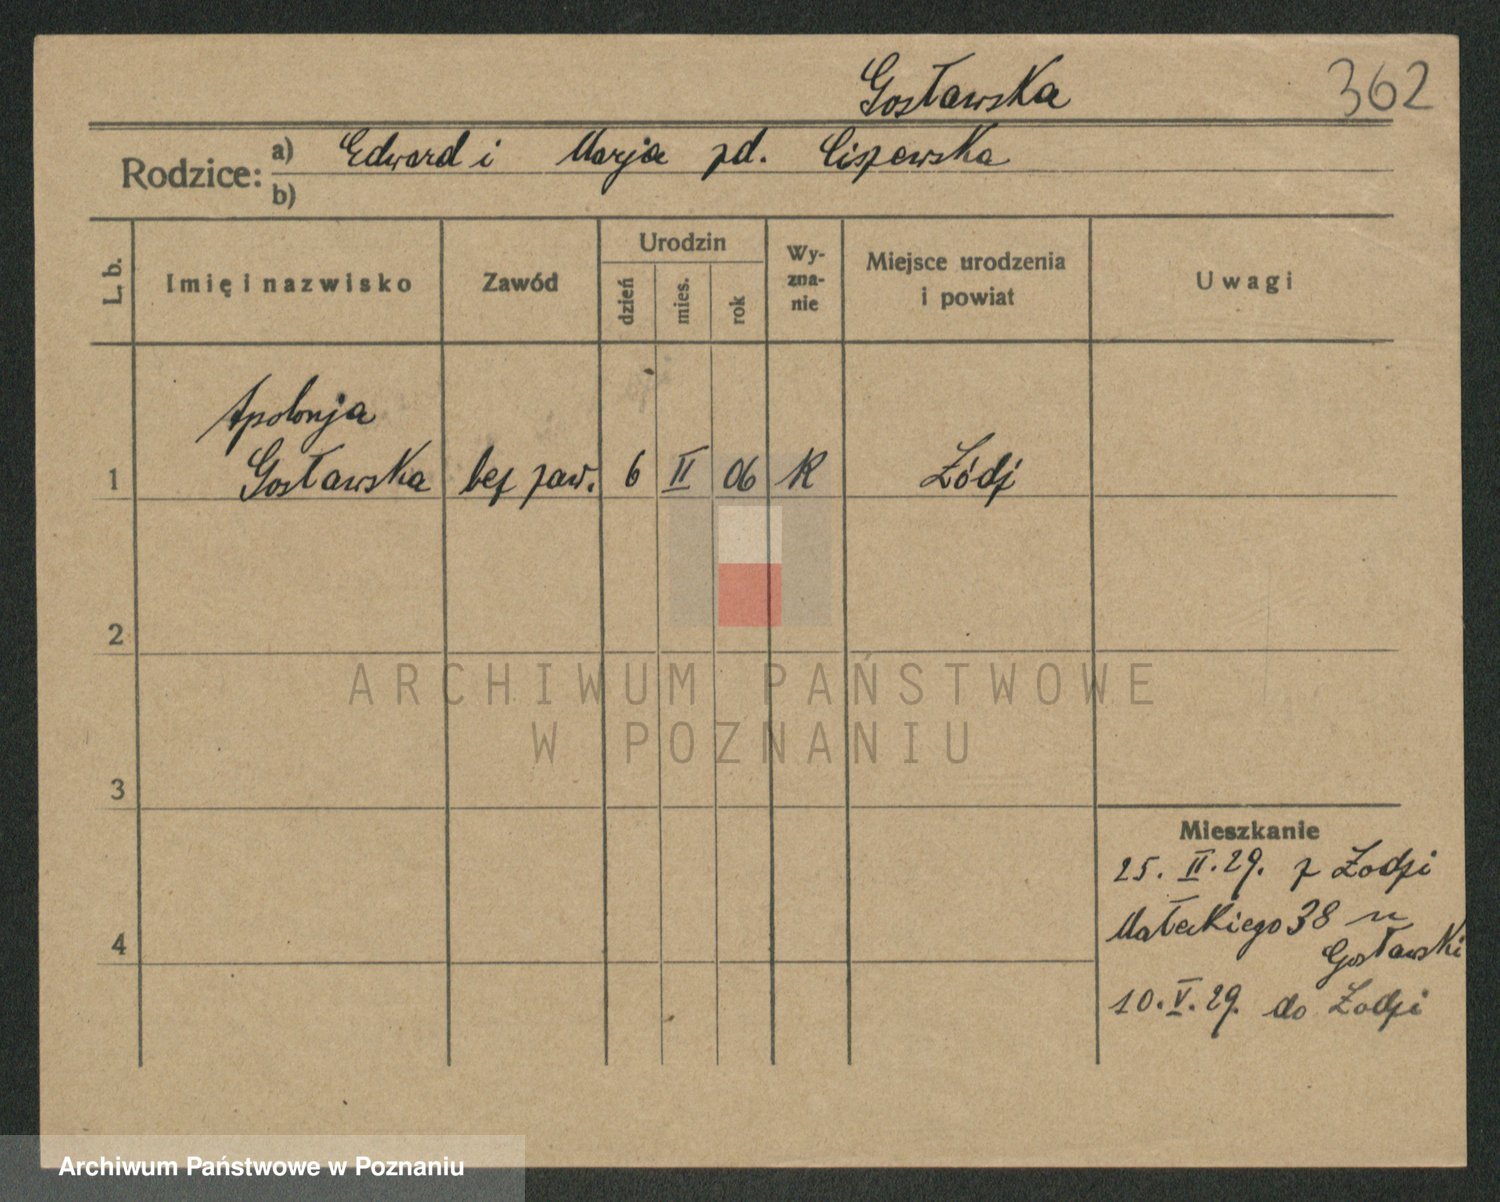 Gosławska
362
Rodzice: a) Edward i Marja zd. Ciszewska
b)
L. b. Imię i nazwisko Zawód Urodzin dzień mies. rok Wy-zna-nie Miejsce urodzenia i powiat Uwagi
Apolonja
1 Gosławska bez zaw. 6 II 06 K Łódź
2
3
4
Mieszkanie
25. II. 29. z Łodzi
Małeckiego 38 u
Gosławski
10. V. 29. do Łodzi
ARCHIWUM PAŃSTWOWE
W POZNANIU
Archiwum Państwowe w Poznaniu